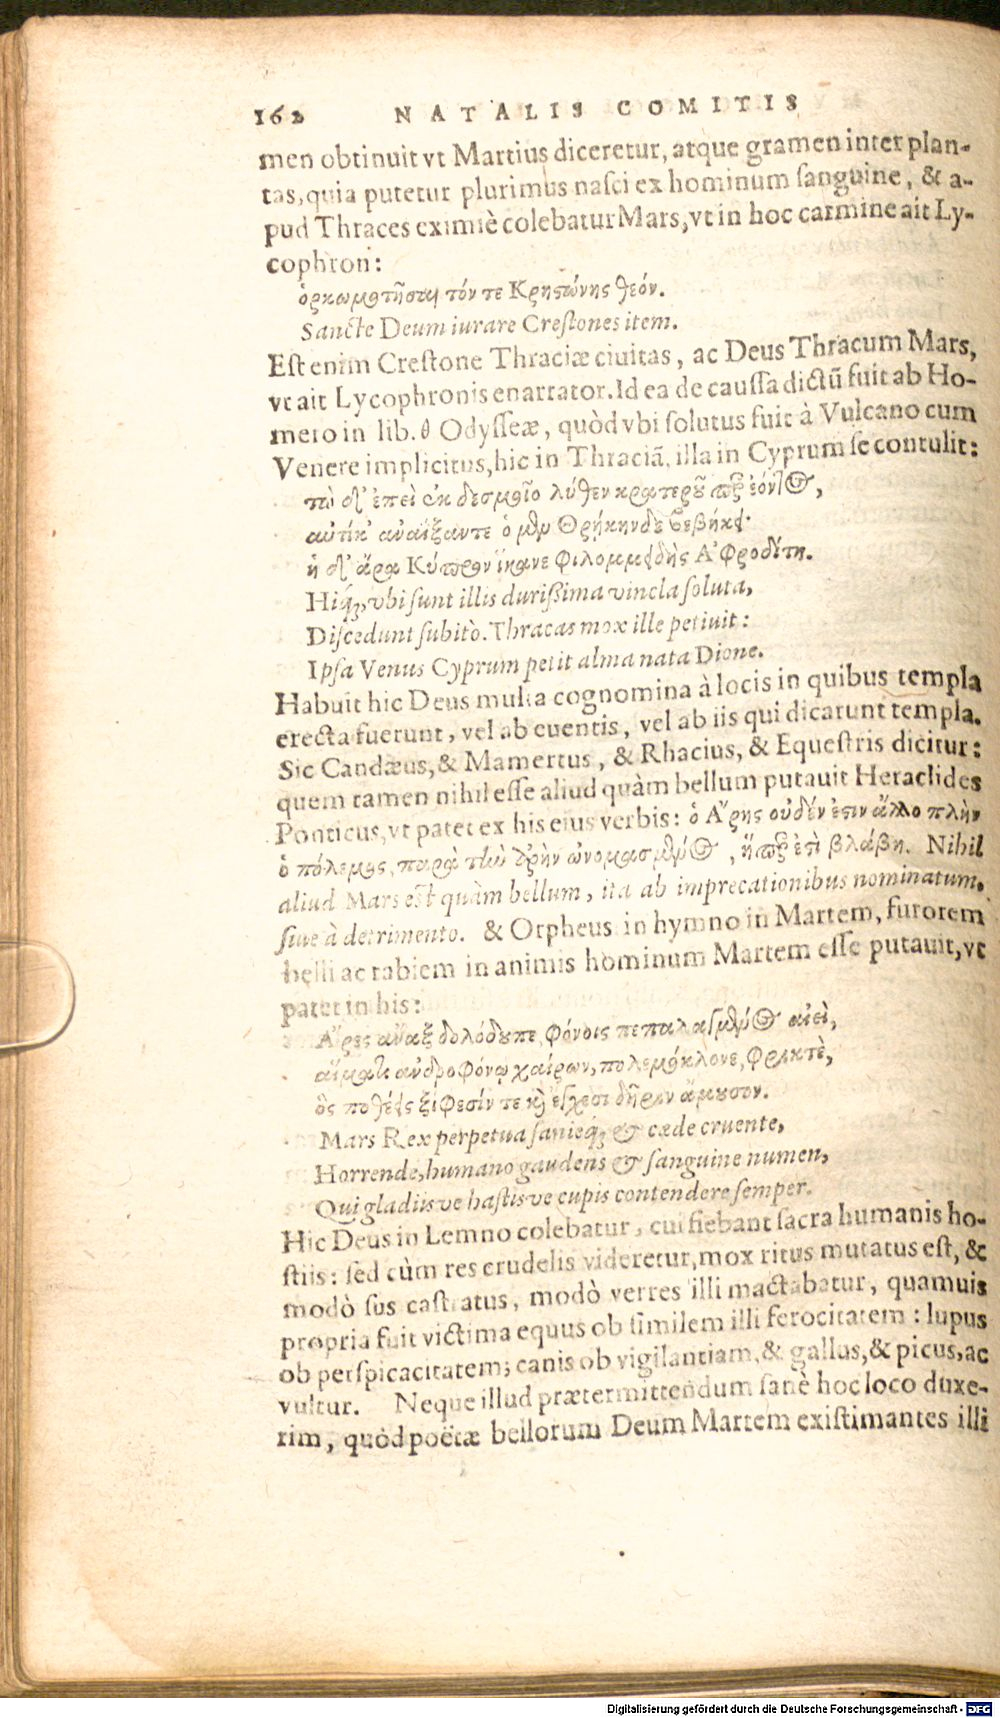 162 NATALIS COMITIS
men obtinuit vt Martius diceretur, atque gramen inter plan-
tas, quia putetur plurimus nasci ex hominum sanguine, & a-
pud Thraces eximiè colebatur Mars, vt in hoc carmine ait Ly-
cophron:
ὁρκωμοτῆσαι τόν τε Κρηστώνης θεόν.
Sancte Deum iurare Crestones item.
Est enim Crestone Thraciæ ciuitas, ac Deus Thracum Mars,
vt ait Lycophronis enarrator. Id ea de caussa dictũ fuit ab Ho-
mero in lib. θ Odysseæ, quòd vbi solutus fuit à Vulcano cum
Venere implicitus, hic in Thraciã, illa in Cyprum se contulit:
τὼ δ' ἐπεὶ ἐκ δεσμοῖο λύθεν κρατεροῦ περ ἐόντος,
αὐτίκ' ἀναΐξαντε ὁ μὲν Θρήκηνδε βεβήκει·
ἡ δ' ἄρα Κύπρον ἵκανε φιλομμειδὴς Ἀφροδίτη.
Hiq́;, vbi sunt illis durißima vincla soluta,
Discedunt subitò. Thracas mox ille petiuit:
Ipsa Venus Cyprum petit alma nata Dione.
Habuit hic Deus multa cognomina à locis in quibus templa
erecta fuerunt, vel ab euentis, vel ab iis qui dicarunt templa.
Sic Candæus, & Mamertus, & Rhacius, & Equestris dicitur:
quem tamen nihil esse aliud quàm bellum putauit Heraclides
Ponticus, vt patet ex his eius verbis: ὁ Ἄρης οὐδέν ἐστιν ἄλλο πλὴν
ὁ πόλεμος, παρὰ τὴν ἀρὴν ὠνομασμένος, ἤπερ ἐστὶ βλάβη. Nihil
aliud Mars est quàm bellum, ita ab imprecationibus nominatum,
siue à detrimento. & Orpheus in hymno in Martem, furorem
belli ac rabiem in animis hominum Martem esse putauit, vt
patet in his:
Ἄρες ἄναξ δολόδουπε, φόνοις πεπαλαγμένος αἰεὶ,
αἵματι ἀνδροφόνῳ χαίρων, πολεμόκλονε, φρικτὲ,
ὃς ποθέεις ξίφεσίν τε καὶ ἔγχεσι δῆριν ἄμουσον.
Mars Rex perpetua sanieq́; & cæde cruente,
Horrende, humano gaudens & sanguine numen,
Qui gladiisve hastisve cupis contendere semper.
Hic Deus in Lemno colebatur, cui fiebant sacra humanis ho-
stiis: sed cùm res crudelis videretur, mox ritus mutatus est, &
modò sus castratus, modò verres illi mactabatur, quamuis
propria fuit victima equus ob similem illi ferocitatem: lupus
ob perspicacitatem; canis ob vigilantiam, & gallus, & picus, ac
vultur. Neque illud prætermittendum sanè hoc loco duxe-
rim, quòd poëtæ bellorum Deum Martem existimantes illi
Digitalisierung gefördert durch die Deutsche Forschungsgemeinschaft - DFG